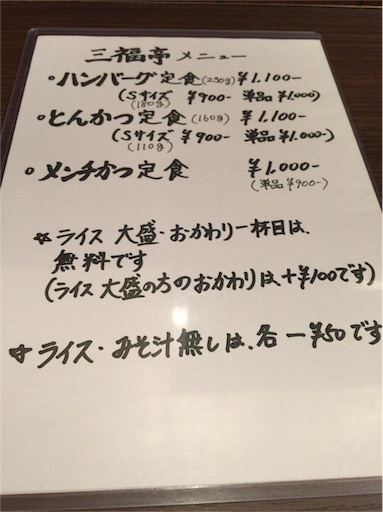 三福亭 メニュー
ハンバーグ定食(250g) ¥1.100-
(Sサイズ ¥900- 単品¥1.000)
(180g)
とんかつ定食(160g) ¥1.100-
(Sサイズ ¥900- 単品¥1.000)
(110g)
メンチかつ定食 ¥1.000-
(単品¥900-)
☆ライス 大盛・おかわり一杯目は、
無料です
(ライス大盛のちのおかわりは、+¥100です)
☆ライス・みそ汁無しは、各−¥50です